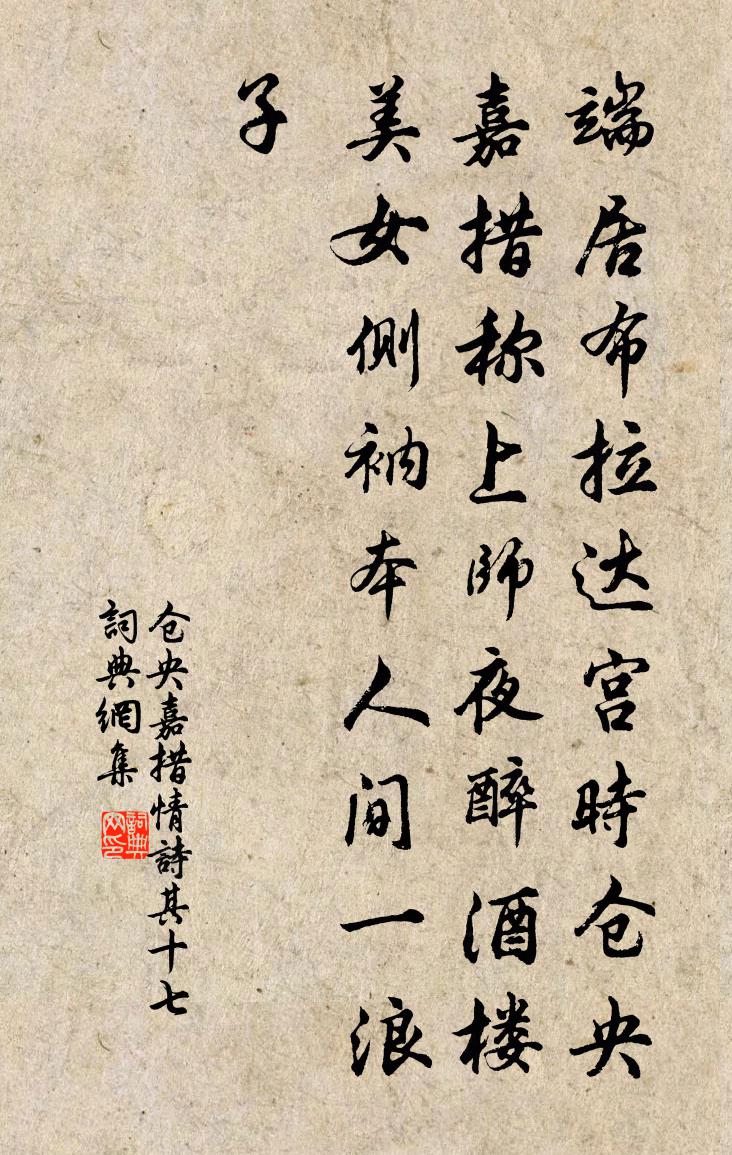 端居布拉达宫時仓央
嘉措称上師夜醉酒楼
美女側衲本人间一浪
子
仓央嘉措情詩其十七
詞典網集
詞典网印